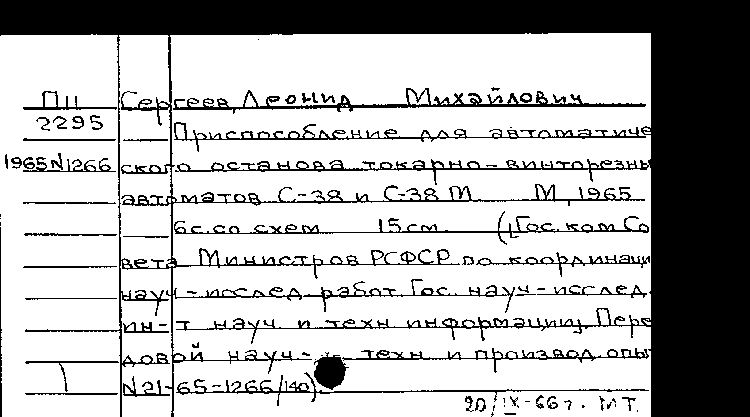 П11 Сергеев, Леонид Михайлович
2295 Приспособление для автоматиче
1965N1266 ского останова токарно-винторезны
автоматов С-38 и С-38 М М, 1965
6с. со схем 15см. ([Гос. ком Со
вета Министров РСФСР по координаци
науч-исслед. работ. Гос. науч-исслед.
ин-т науч. и техн информации]. Пере
довой науч- техн и производ опы
N21-65-1266/140)
20/IX-66 г. МТ.